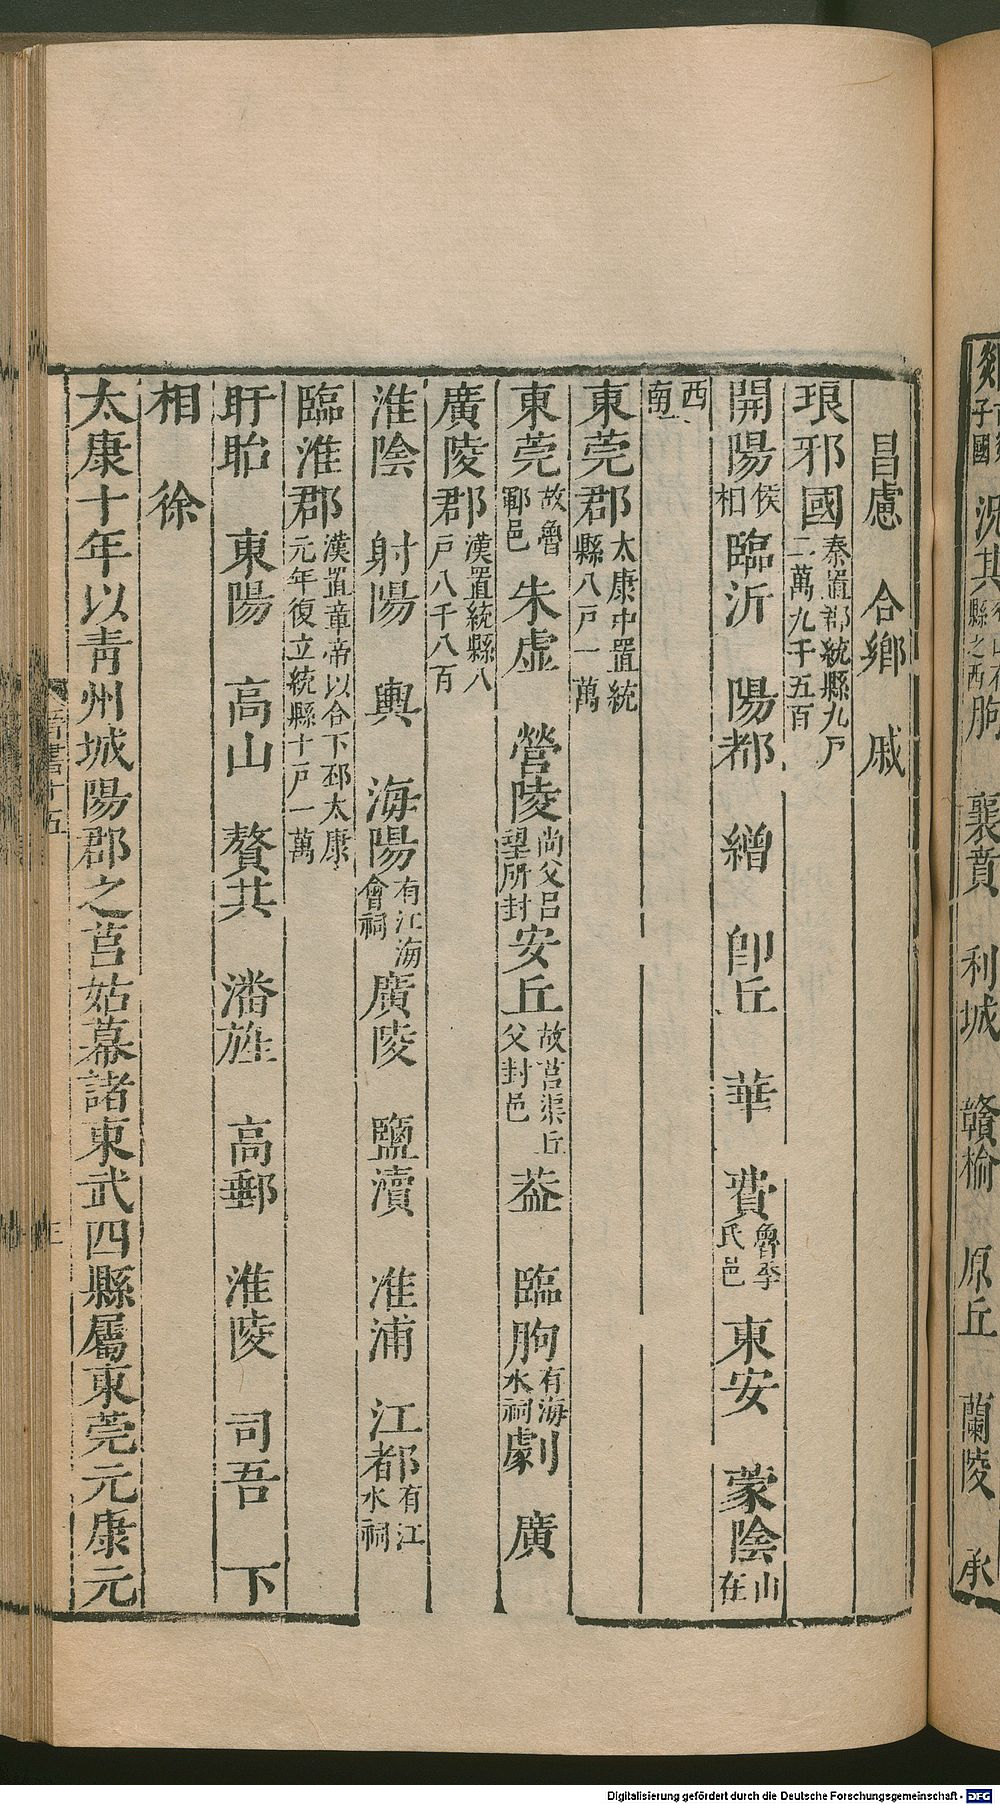 郯子國 況其 縣之西 朐 襄賁 利城 贛榆 原丘 蘭陵 承
昌慮 合鄉 戚
琅邪國 秦置郡統縣九戶二萬九千五百
開陽 侯相 臨沂 陽都 繒 即丘 華 費 魯季氏邑 東安 蒙陰 山在
西南
東莞郡 太康中置統縣八戶一萬
東莞 故魯鄆邑 朱虛 營陵 尚父呂望所封 安丘 故莒渠丘父封邑 葢 臨朐 有海水祠 劇 廣
廣陵郡 漢置統縣八戶八千八百
淮陰 射陽 輿 海陽 有江海會祠 廣陵 鹽瀆 淮浦 江都 有江水祠
臨淮郡 漢置章帝以合下邳太康元年復立統縣十戶一萬
盱眙 東陽 高山 贅其 潘旌 高郵 淮陵 司吾 下
相 徐
太康十年以青州城陽郡之莒姑幕諸東武四縣屬東莞元康元
晉書十五
三
Digitalisierung gefördert durch die Deutsche Forschungsgemeinschaft - DFG